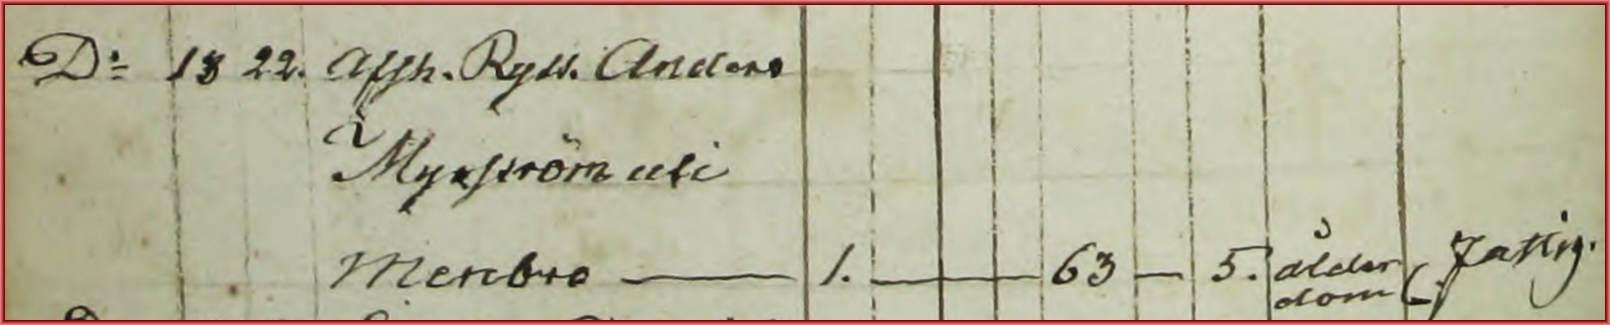 Do 13 22. Afsk. Ryss. Anders
Myrström uti
Menbro — 1. — 63 — 5. ålder
dom Fattig.